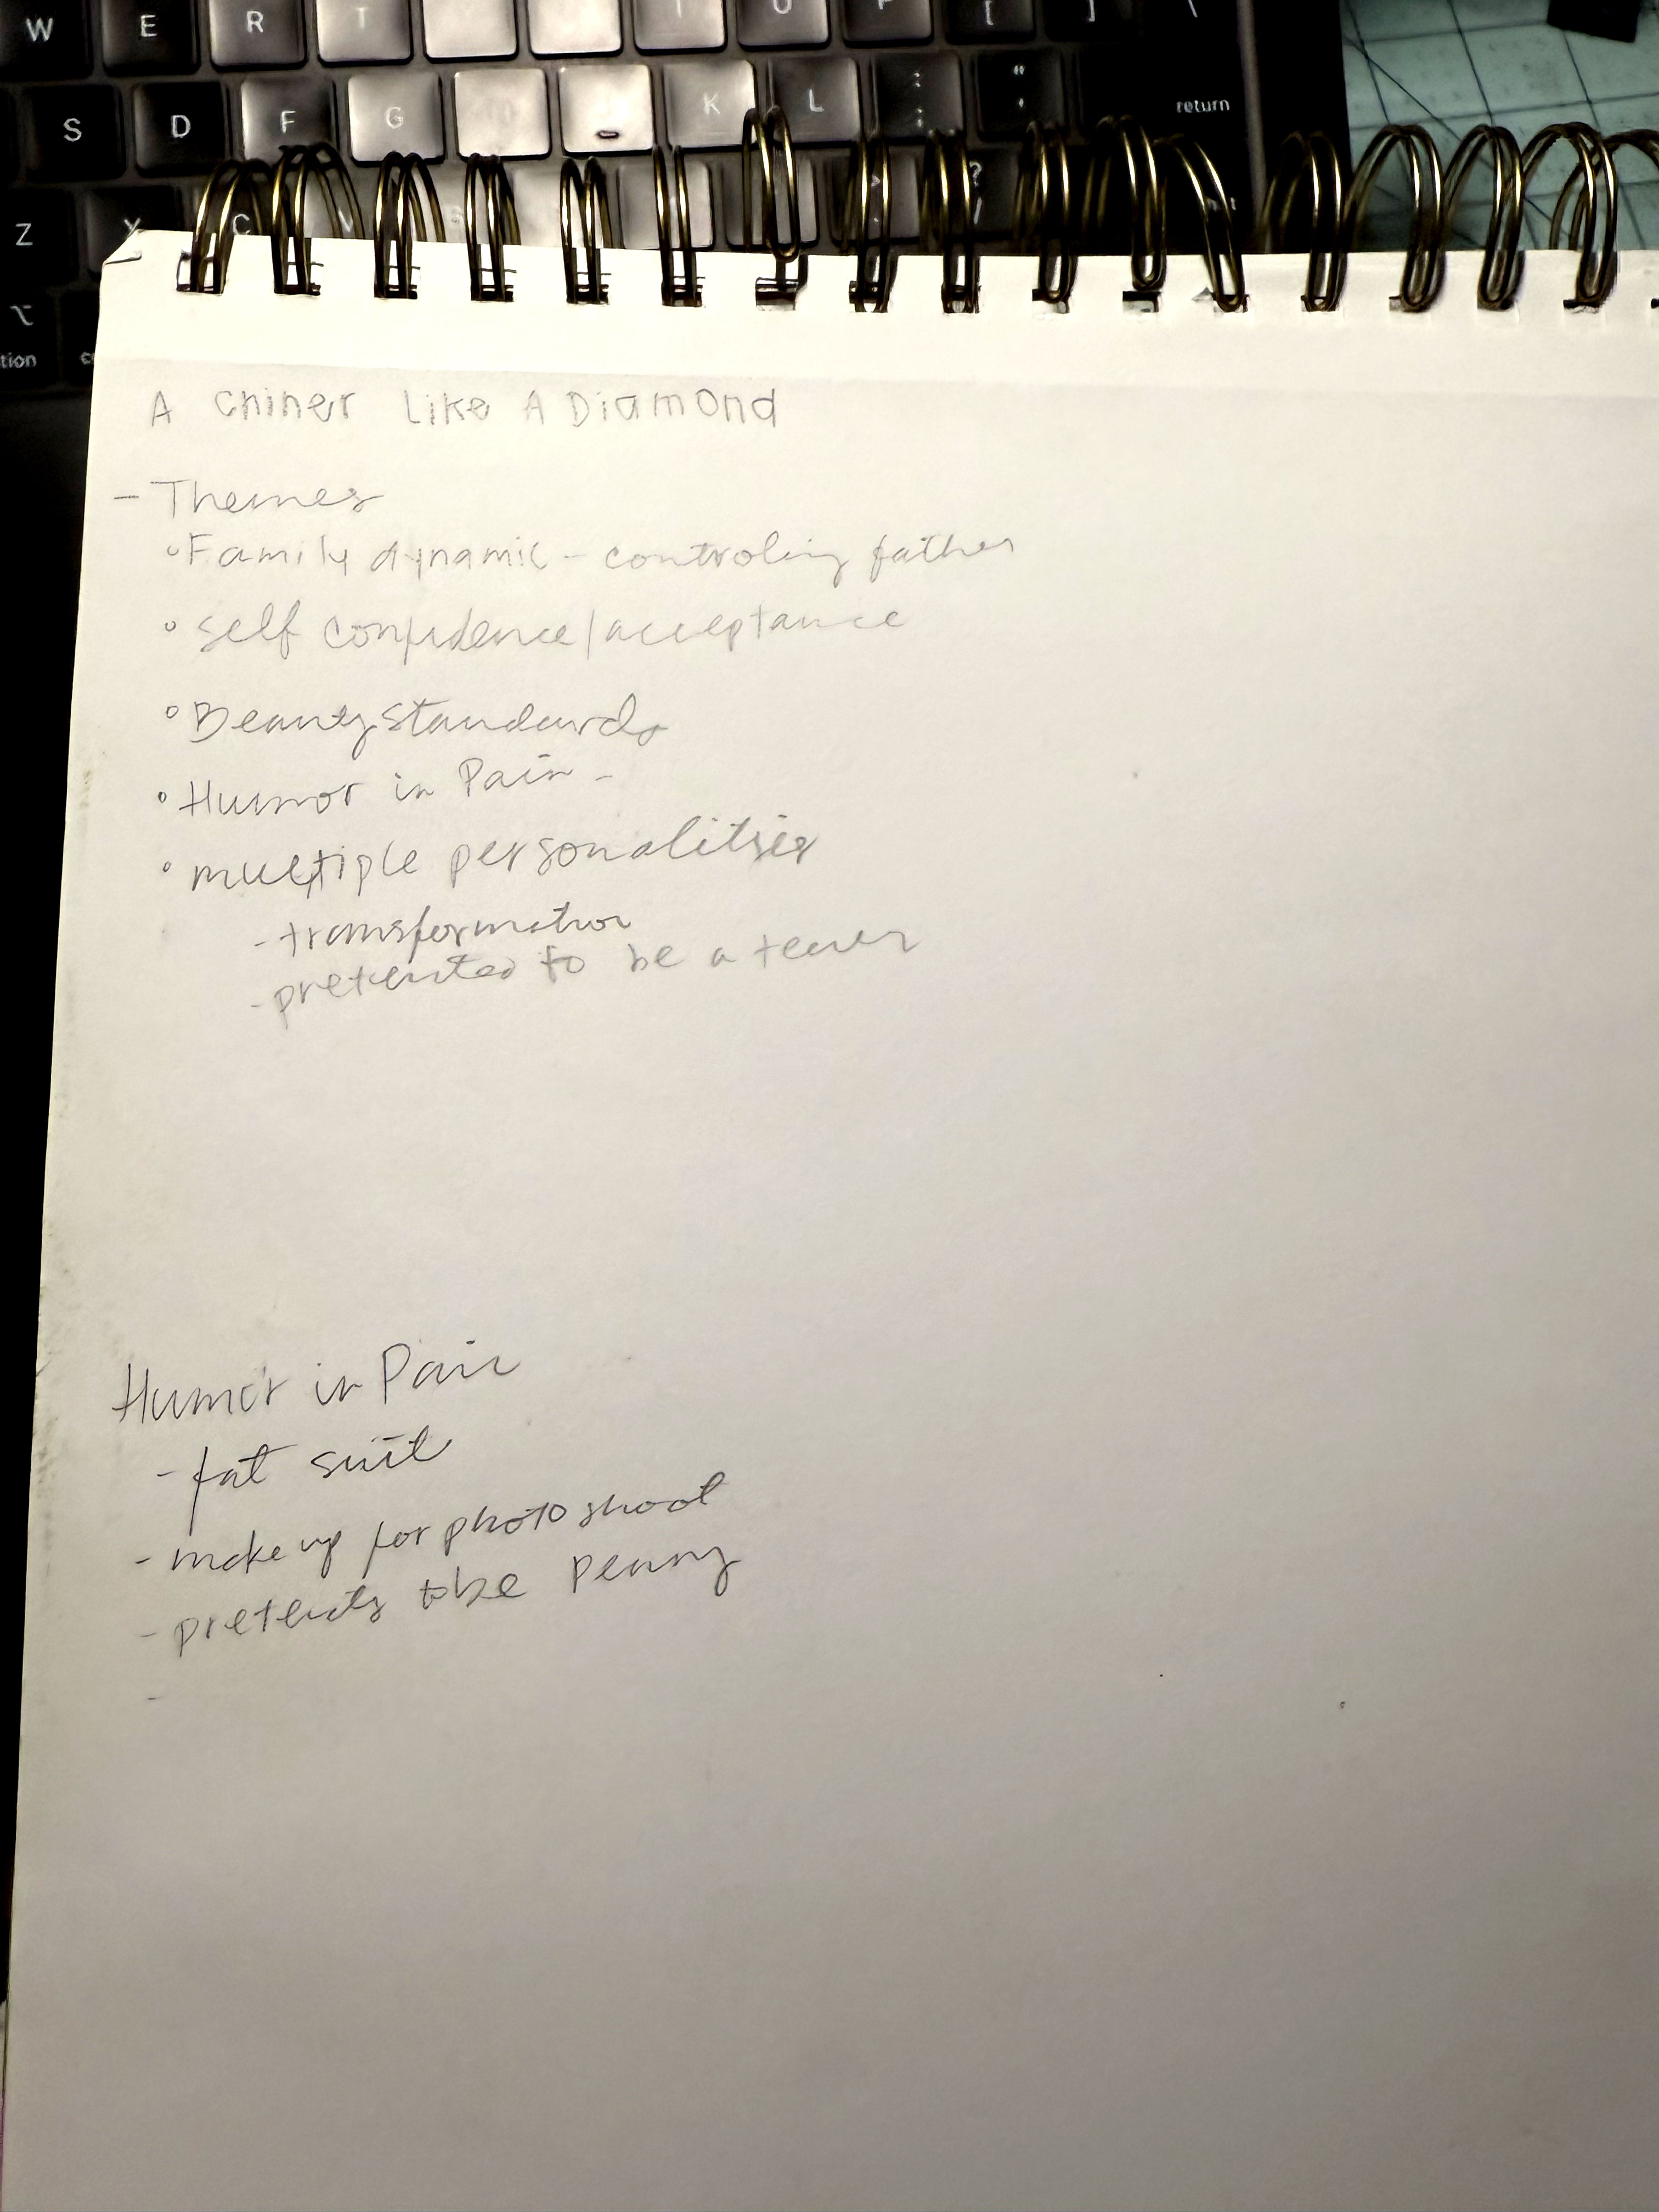 W E R T U O P [ ] \
S D F G K L : ; " ' return
Z X C V > . ? /
⌥
tion
A Chiner Like A Diamond
- Themes
° Family dynamic - controling father
° self confidence/acceptance
° Beauty standards
° Humor in Pain -
° multiple personalities
- transformation
- pretented to be a
Humor in Pain
- fat suit
- make up for photo shoot
- pretents to be Penny
-